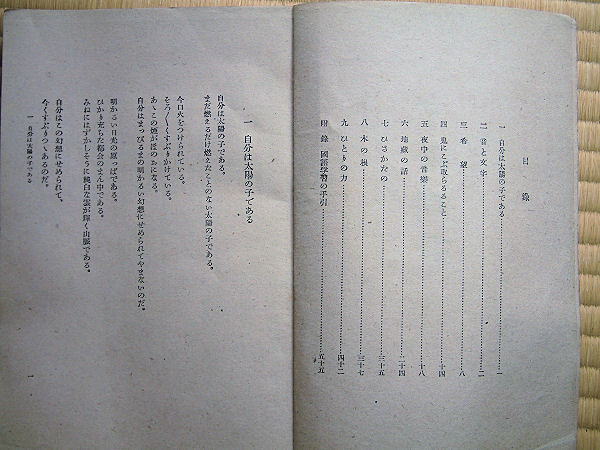 目錄
一 自分は太陽の子である 一
二 音と文字 二
三 希望 八
四 鬼にこぶ取らるること 十四
五 夜中の音樂 十八
六 地藏の話 二十四
七 ひさかたの 三十五
八 木の根 三十七
九 ひとりの力 四十二
附錄 國語學習の手引 五十五
一 自分は太陽の子である
自分は太陽の子である。
まだ燃えるだけ燃えたことのない太陽の子である。
今口火をつけられている。
そろ〳〵くすぶりかけている。
あゝこの煙がほのおになる。
自分はまっぴるまの明かるい幻想にせめられてやまないのだ。
明かるい白光の原っぱである。
ひかり充ちた都会のまん中である。
みねにはずかしそうに純白な雪が輝く山脈である。
自分はこの幻想にせめられて、
今くすぶりつゝあるのだ。
一 自分は太陽の子である
一